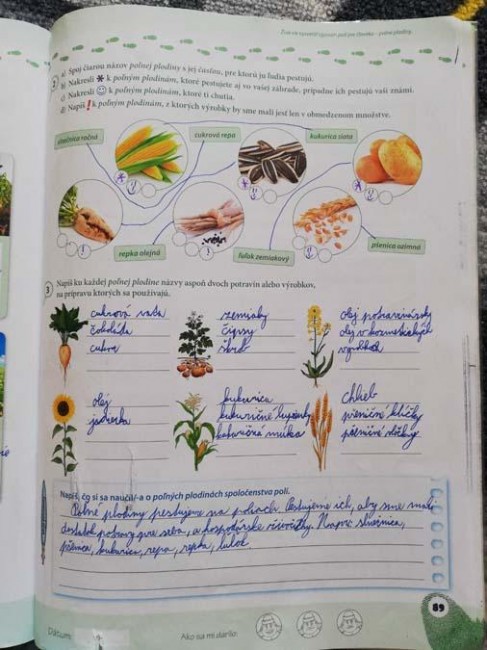 Živá súčasť spoločenstva
a) Spoj čiarou názov poľnej plodiny s jej časťou, pre ktorú ju ľudia pestujú.
2 b) Nakresli * k poľným plodinám, ktoré pestujete aj vo vašej záhrade, prípadne ich pestujú vaši známi.
c) Nakresli ☺ k poľným plodinám, ktoré ti chutia.
d) Napíš ! k poľným plodinám, z ktorých výrobky by sme mali jesť len v obmedzenom množstve.
slnečnica ročná
cukrová repa
kukurica siata
repka olejná
ľuľok zemiakový
pšenica ozimná
3 Napíš ku každej poľnej plodine názvy aspoň dvoch potravín alebo výrobkov,
na prípravu ktorých sa používajú.
cukrová
čokoláda
cukor
zemiaky
čipsy
škrob
olej potravinársky
olej v kozmetických
výrobkoch
olej
jadierka
kukurica
kukuričné lupienky
kukuričná múka
chlieb
pšeničné klíčky
pšeničné vločky
Napíš, čo si sa naučil/-a o poľných plodinách spoločenstva polí.
Poľné plodiny pestujeme na poliach. Pestujeme ich, aby sme mali
dostatok potravy pre seba, a hospodárske živočíchy. Napr. slnečnica,
pšenica, kukurica, repa, repka, ľuľok
89
Dátum:
Ako sa mi darilo: